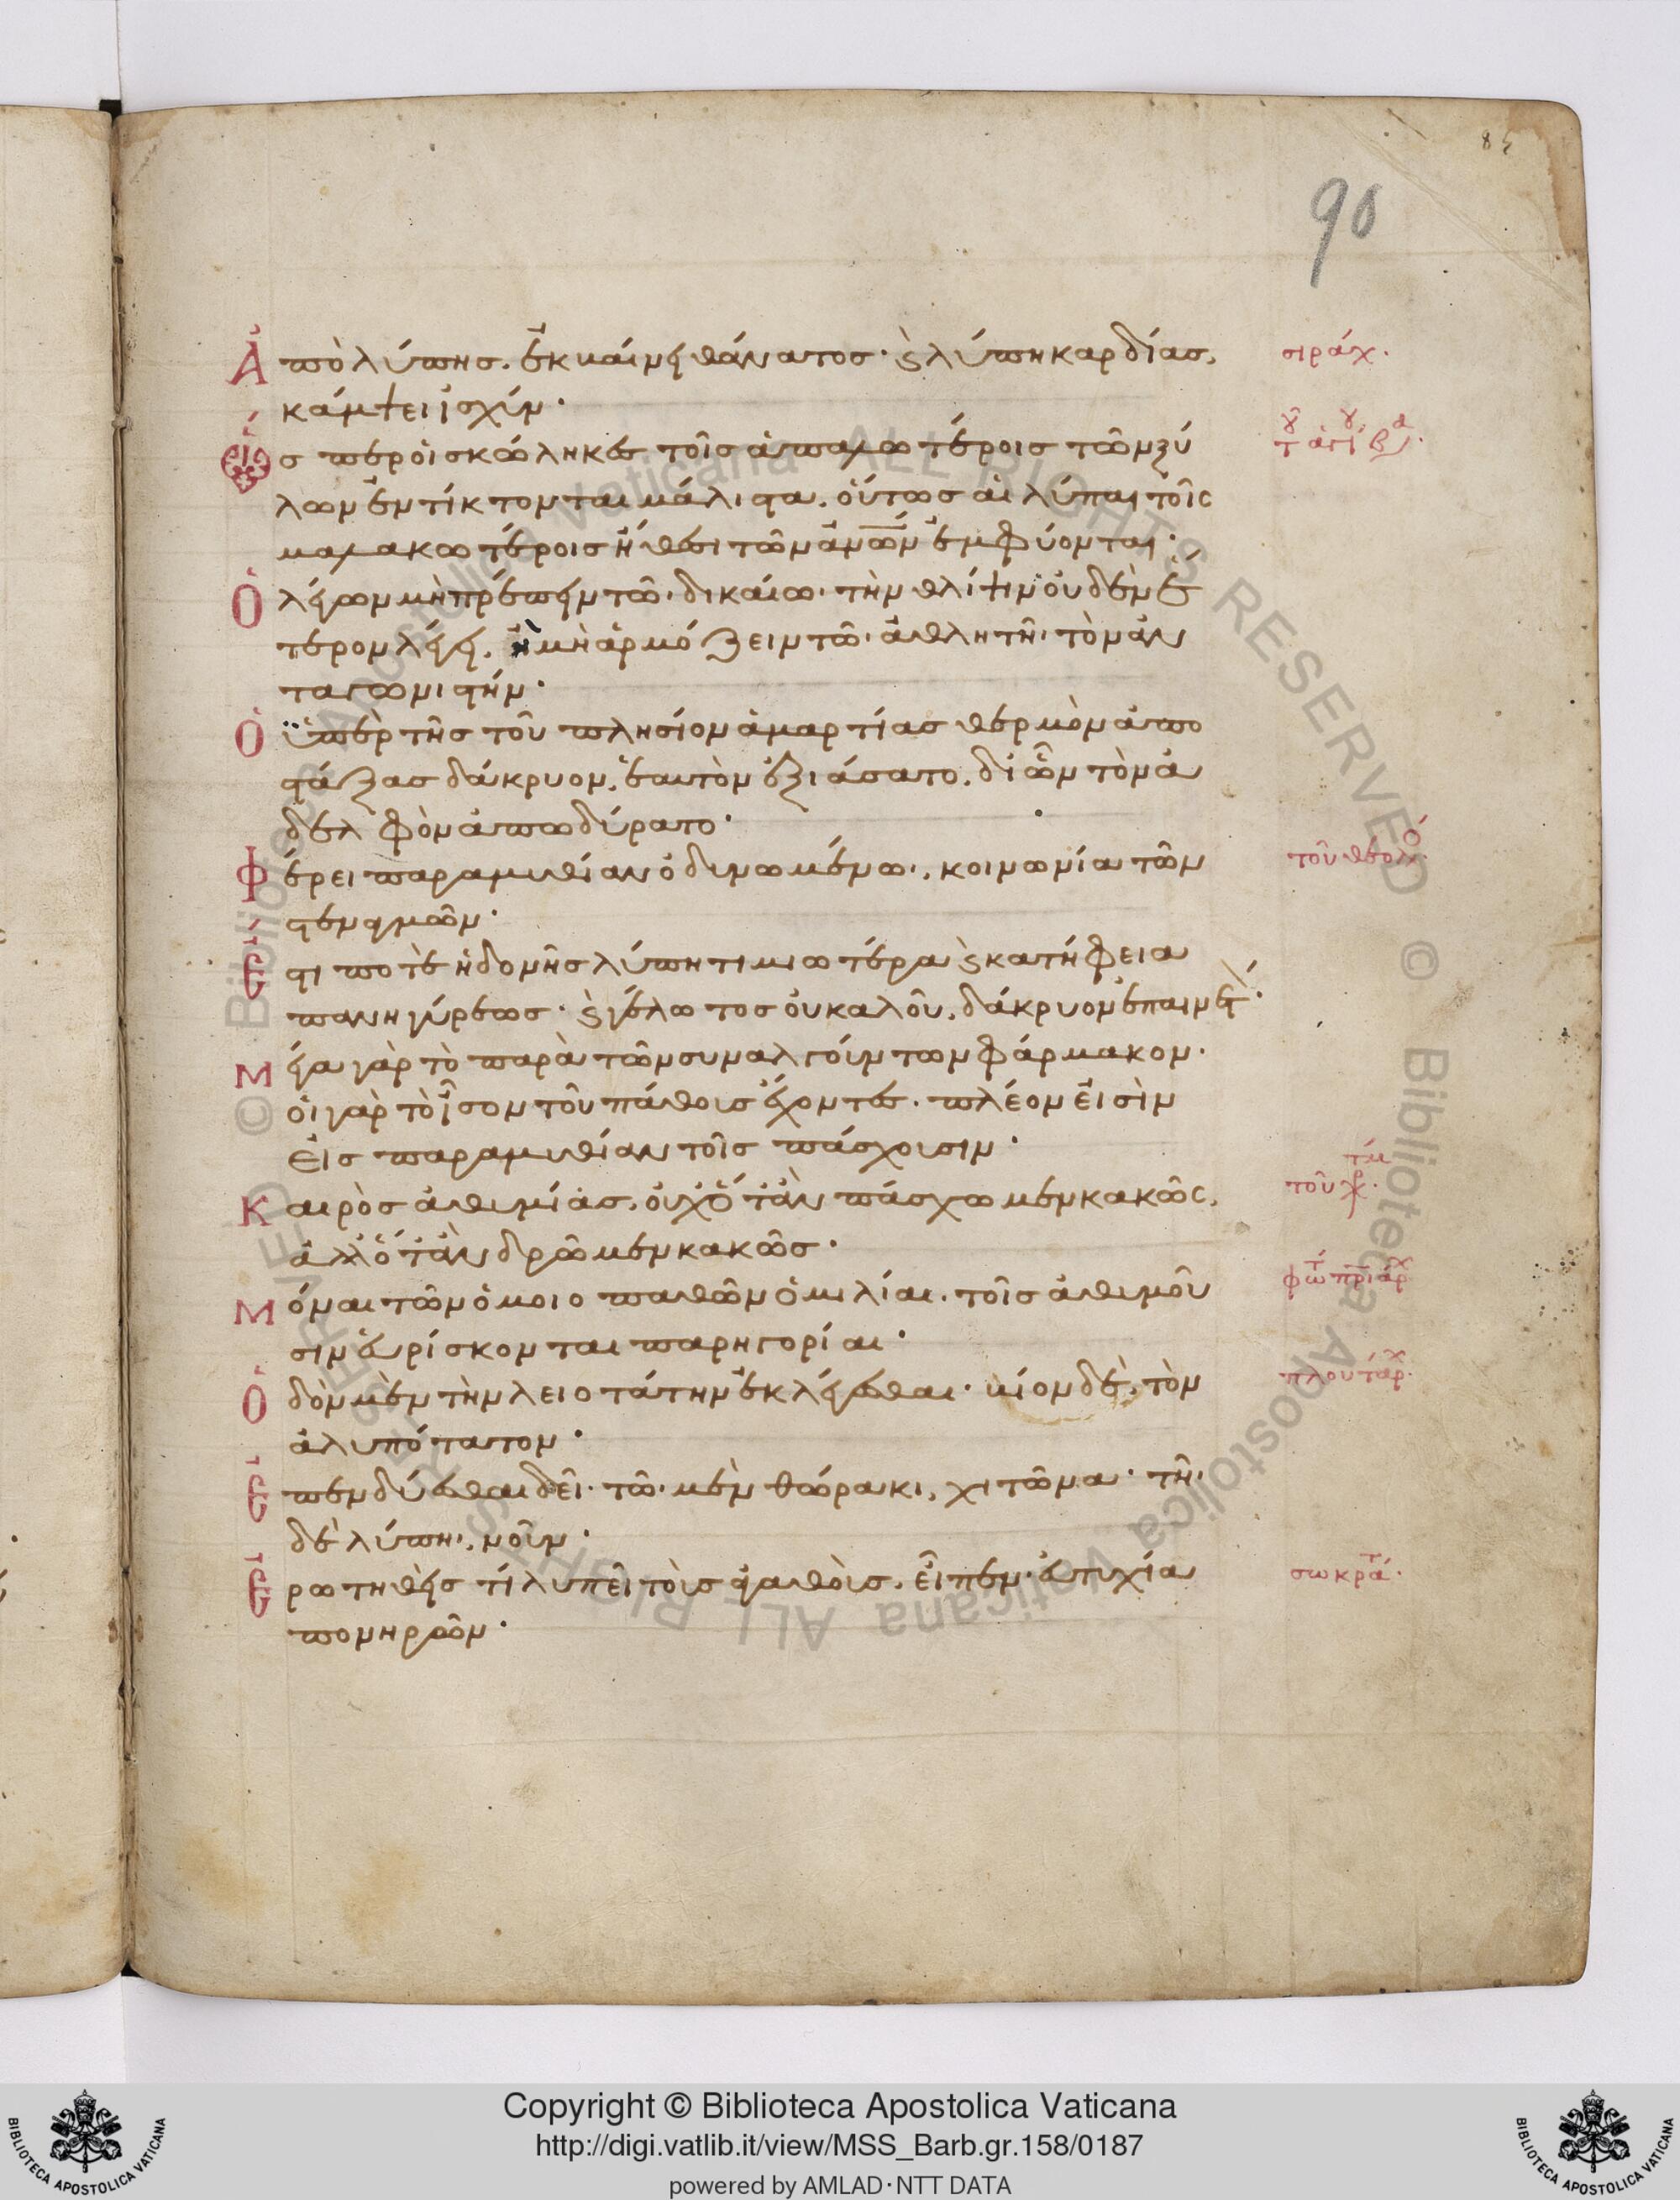 85
90
Ἀπὸ λύπης, ἐκβαίνει θάνατος· ϗ λύπη καρδίας, σιράχ·
κάμψει ἰσχύν·
Ὥσπερ οἱ σκώληκες τοῖς ἁπαλωτέροις τῶν ξύ
λων ἐντίκτονται μάλιστα, οὕτως αἱ λύπαι τοῖς
μαλακωτέροις ἤθεσι τῶν ἀν̅ω̅ν̅ ἐμφύονται·
Ὁ λέγων μὴ πρέπειν τῶ δικαίω τὴν θλίψιν οὐδὲν ἕ
τερον λέγει, ἢ μὴ ἁρμόζειν τῶ ἀθλητῆ τὸν ἀν
ταγωνιστήν·
Ὁ ὑπὲρ τῆς τοῦ πλησίον ἁμαρτίας θερμὸν ἀπο
στάξας δάκρυον, ἑαυτὸν ἐξιάσατο, δι' ὧν τὸν ἀ
δελφὸν ἀπωδύρατο·
Φέρει παραμυθίαν ὀδυνωμένω, κοινωνία τῶν τοῦ θεολό·
στεναγμῶν·
Ἔστι ποτὲ ἡδονῆς λύπη τιμιωτέρα ϗ κατήφεια
πανηγύρεως· ϗ γέλωτος οὐ καλοῦ, δάκρυον ἐπαινετόν·
Μέγα γὰρ τὸ παρὰ τῶν συναλγούντων φάρμακον·
οἱ γὰρ τὸ ἶσον τοῦ πάθους ἔχοντες, πλέον εἰσὶν
εἰς παραμυθίαν τοῖς πάσχουσιν·
Καιρὸς ἀθυμίας, οὐχ' ὅτὰν πάσχωμεν κακῶς, τοῦ χρ·
ἀλλ' ὅτὰν δρῶμεν κακῶς·
Μόναι τῶν ὁμοιοπαθῶν ὁμιλίαι, τοῖς ἀθυμοῦ φωτ πριάρχ
σιν εὑρίσκονται παρηγορίαι·
Ὁδὸν μὲν τὴν λειοτάτην ἐκλέγεσθαι· βίον δὲ, τὸν πλουτάρχ·
ἀλυπότατον·
Ἐπενδύεσθαι δεῖ· τῶ μὲν θώρακι, χιτῶνα· τῆ
δὲ λύπη, νοῦν·
Ἐρωτηθεὶς τί λυπεῖ τοὺς ἀγαθοὺς, εἶπεν· εὐτυχία σωκράτ·
πονηρῶν·
Copyright © Biblioteca Apostolica Vaticana
http://digi.vatlib.it/view/MSS_Barb.gr.158/0187
powered by AMLAD·NTT DATA
BIBLIOTECA APOSTOLICA VATICANA
BIBLIOTECA APOSTOLICA VATICANA